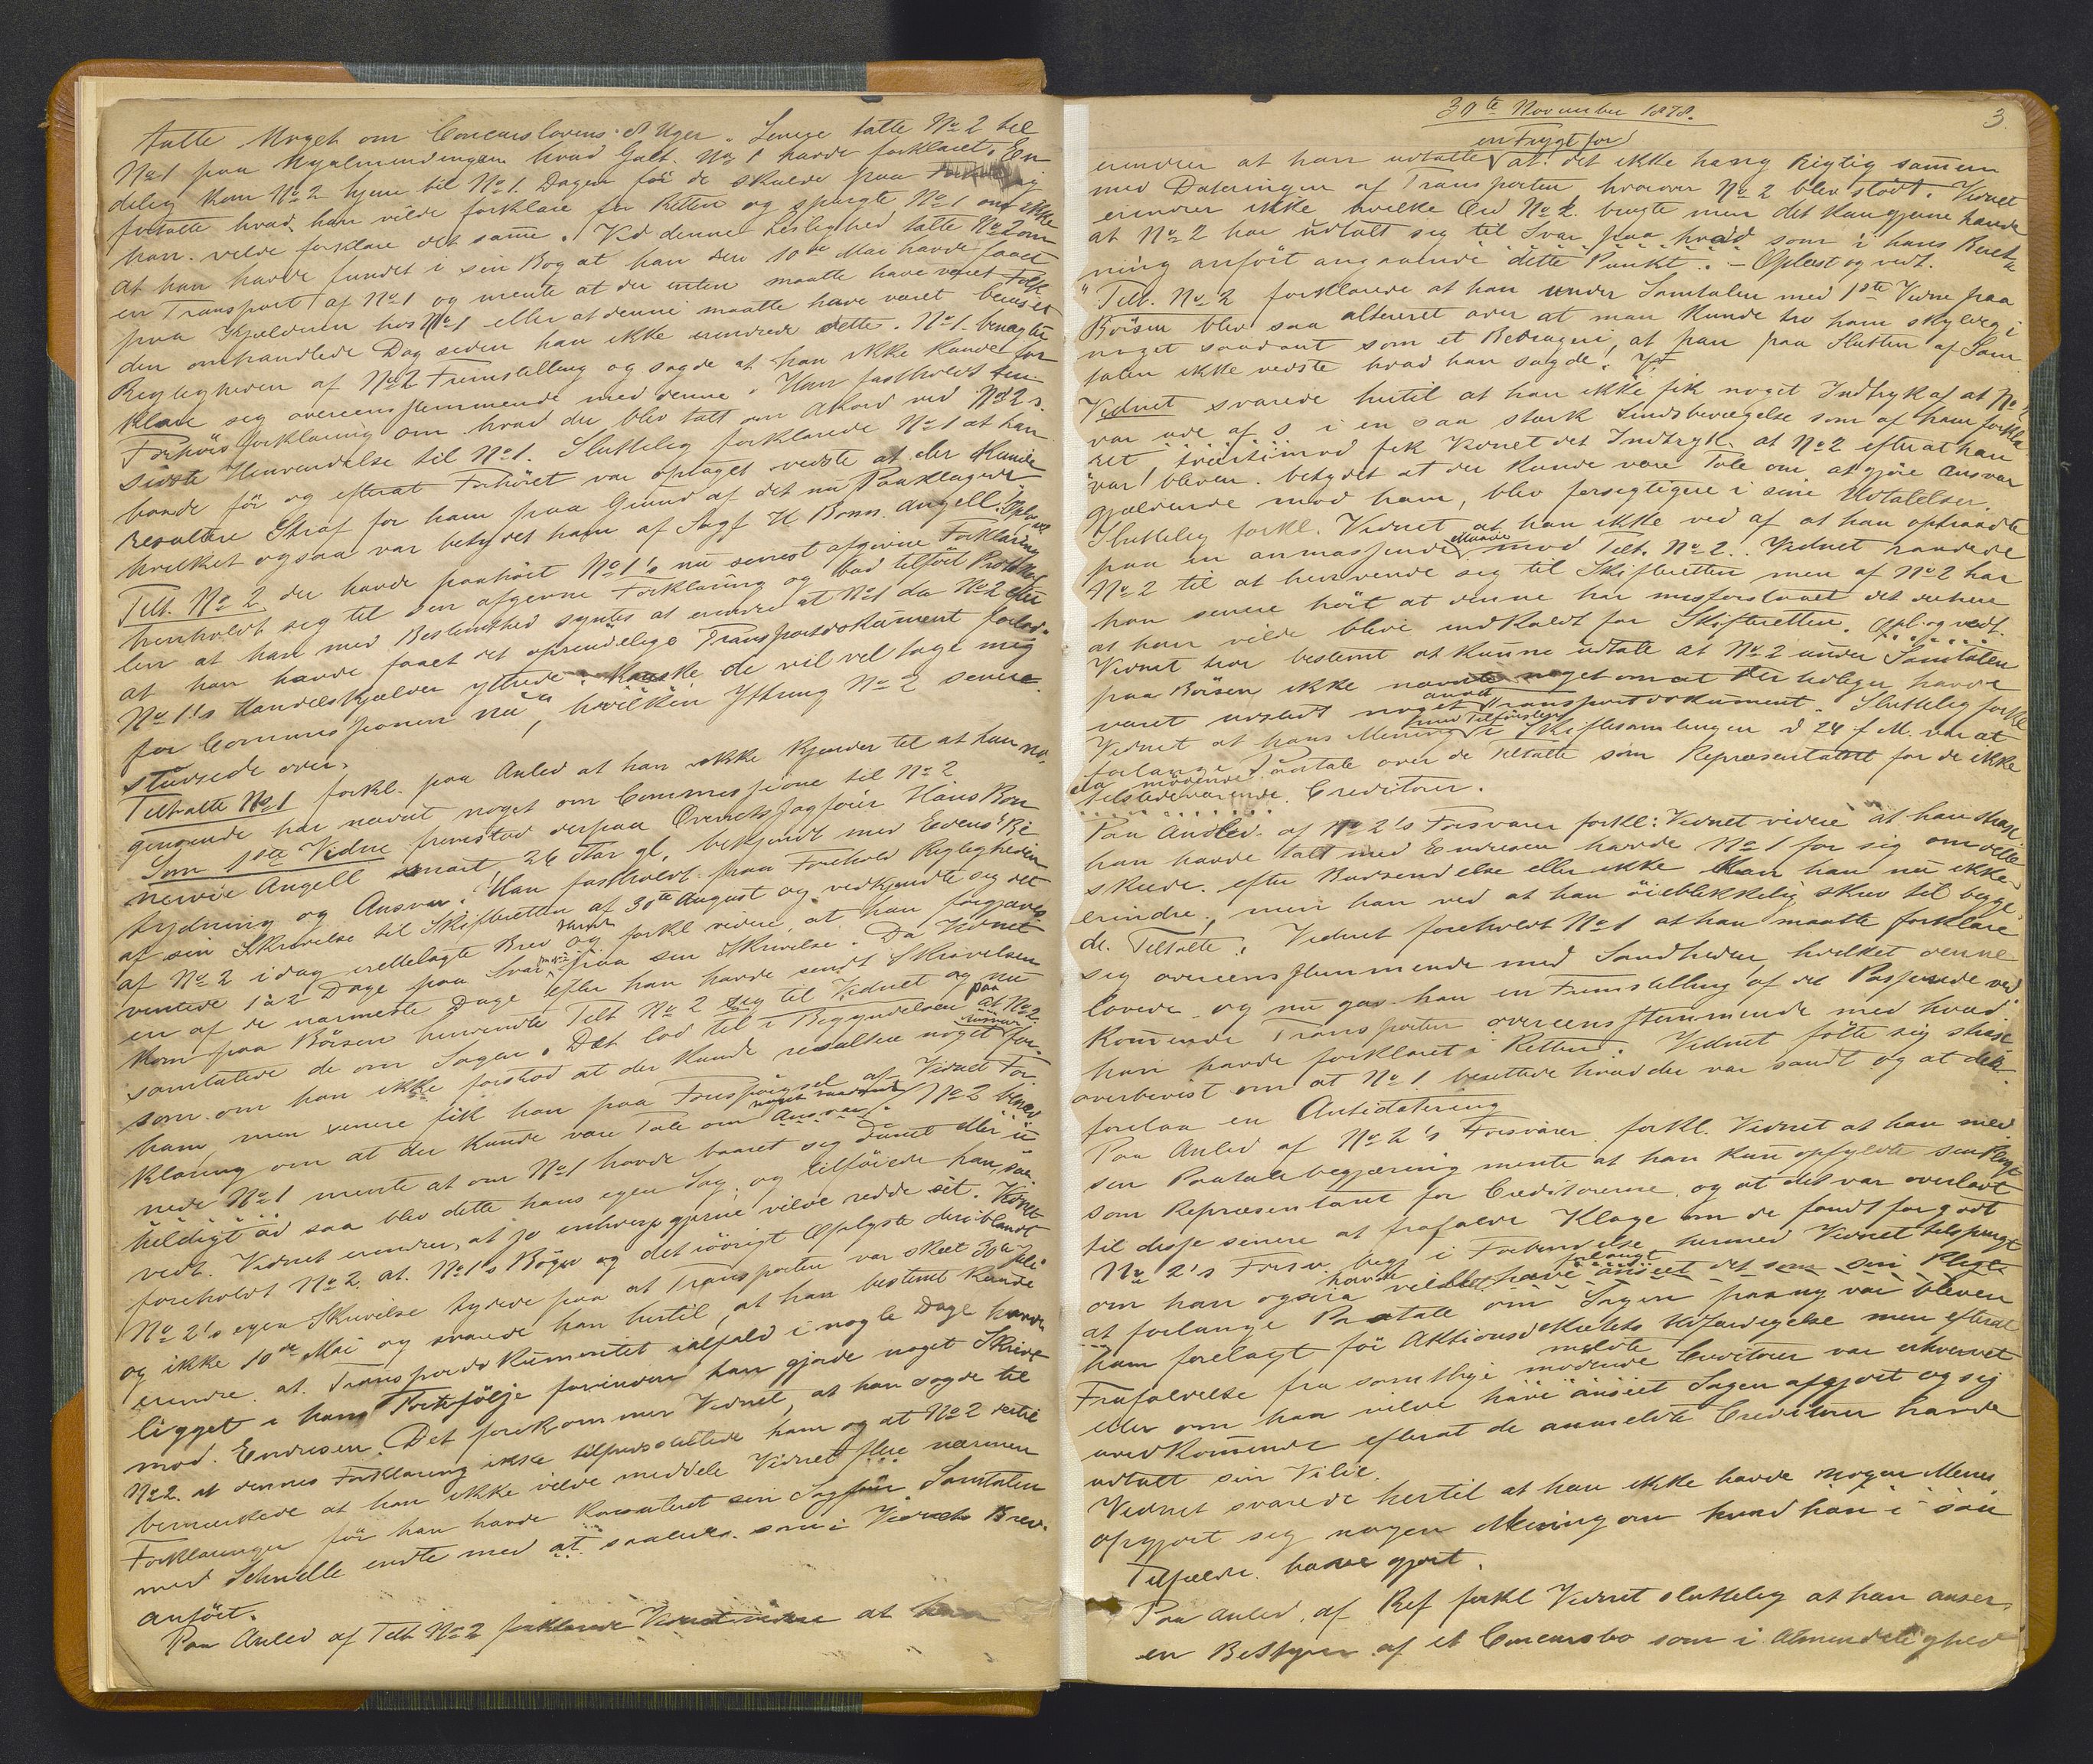 talte Noget om Concurslovens 8 Uger. Senere talte No 2 til
No 1 paa Myalmindingen hvad Galt. No 1 havde forklaret. En
delig kom No 2 hjem til No 1. Dagen før de skulde paa
fortalte hvad han vilde forklare for Retten og spurgte No 1 om ikke
han vilde forklare det samme. Ved denne Leilighed talte No 2 om
at han havde fundet i sin Bog at han den 10de Mai havde faaet
en Transport af No 1 og mente at der enten maatte have været Folk
paa Kjælderen hos No 1 eller at denne maatte have været beruset
den omhandlede Dag siden han ikke erindrede dette. No 1 benægtede
Rigtigheden af No 2 Fremstilling og sagde at han ikke kunde for
klare seg overeensstemmende med denne. Han fastholdt sin
Forhørsforklaring om hvad der blev talt om Akkord ved No 2s
sidste Henvendelse til No 1. Sluttelig forklarede No 1 at han
baade før og efterat Forhöret var optaget vidste at der kunde
resultere Straf for ham paa Grund af det nu Paaklagede
hvilket ogsaa var betydet ham af Sagf H Bonn. Angell. Opl. vedt.
Tilt. No 2 der havde paahört No 1's nu senest afgivne Forklaring
henholdt sig til sin afgivne Forklaring og bad tilföiet Protokol
len at han med Bestemthed syntes at erindre at No 1 da No 2 efter
at han havde faaet det oprindelige Transportdokument forlod
No 1's Handelskjælder yttrede: kanske de vil vel tage mig
for Commissionen nu", hvilken Yttring No 2 senere
studsede over.
Tiltalte No 1 forkl. paa Anled at han ikke kjender til at han no.
gensinde har nævnt noget om Commissione til No 2
Som 1ste Vidne fremstod derpaa Overretssagförer Hans Bon
nevie Angell snart 26 Aar gl. bekjendt med Edens Be
tydning og Ansvar. Han fastholdt paa Forehold Rigtigheden
af sin Skrivelse til Skifteretten af 30te August og vedkjendte sig det
af No 2 idag irettelagte Brev samt og forkl videre, at han forgjæves
ventede 1 à 2 Dage paa Svar paa sin Skrivelse. Da Vidnet
en af de nærmeste Dage efter han havde sendt Skrivelsen
kom paa Börsen henvendte Tilt No 2 sig til Vidnet og nu
samtalede de om Sagen. Det lod til i Begyndelsen paa at No 2
som om han ikke forstod at der kunde resultere noget for
ham men senere fik han paa Forespörgsel af Vidnet For
klaring om at der kunde være Tale om noget saadant Ansvar. No 2 benæg
nede No 1 mente at om No 1 havde baaret sig dumt eller u
heldigt ad saa blev dette hans egen Sag, og tilföiede han, saa
vidt Vidnet erindrer, at jo enhver gjerne vilde redde sit. Vidnet
foreholdt No 2 at No 1s Böger og det iövrigt Oplyste deriblandt
No 2's egen Skrivelse tydede paa at Transporten var skeet 30te Juli
og ikke 10de Mai og svarede han hertil, at han bestemt kunde
erindre at Transportdokumentet ialfald i nogle Dage havde
ligget i hans Portefölje forinden han gjorde noget Skridt
mod Endresen. Det forekommer Vidnet, at han sagde til
No 2 at dennes Forklaring ikke tilfredsstillede ham og at No 2 dertil
bemærkede at han ikke vilde meddele Vidnet flere nærmere
Forklaringer för han havde konsuleret sin Sagförer Samtalen
med Schnelle endte med at saaledes som i Vidnets Brev
anfört.
Paa Anled af Tilt No 2 forklarede Vidnet videre at han
30te November 1878.
3
en Frygt for
erindrer at han udtalte at det ikke hang Rigtig sammen
med Dateringen af Transporten hvorover No 2 blev stödt. Vidnet
erindrer ikke hvilke Ord No 2 brugte men det kan gjerne hænde
at No 2 har udtalt sig til Svar paa hvad som i hans Beret
ning anfört angaaende dette Punkt. – Oplæst og vedt.
Tilt. No 2 forklarede at han under Samtalen med 1ste Vidne paa
Börsen blev saa altereret over at man kunde tro ham skyldig i
noget saadant som et Bedrageri, at han paa Slutten af Sam
talen ikke vidste hvad han sagde.
Vidnet svarede hertil at han ikke fik noget Indtryk af at No 2
var ude af s i en saa stærk Sindsbevægelse som af ham forkla
ret tvertimod fik Vidnet det Indtryk at No 2 efterat han
var bleven betydet at der kunde være Tale om at gjöre Ansvar
gjældende mod ham, blev forsigtigere i sine Udtalelser.
Sluttelig forkl. Vidnet at han ikke ved af at han optraadte
paa en anmassende Maade mod Tilt. No 2. Vidnet raadede
No 2 til at henvende sig til Skifteretten men af No 2 har
han senere hört at denne har misforstaaet det derhen
at han vilde blive indkaldt for Skifteretten. Opl. og vedt.
Vidnet tror bestemt at kunne udtale at No 2 under Samtalen
paa Börsen ikke nævnte noget om at der tidligere havde
været udstedt noget andet Transportdokument. Sluttelig forkl
Vidnet at hans Mening med Tilförslen i Skiftesamlingen d 24 f M. var at
forlange Paatale over de Tiltalte som Repræsentant for de ikke
da mödende
tilstedeværende Creditorer.
Paa Anled. af No 2's Forsvarer forkl: Vidnet videre at han strax
han havde talt med Endresen havde No 1 for sig om dette
skede efter Budsendelse eller ikke kan han nu ikke
erindre, men han ved at han öieblikkelig skrev til begge
de Tiltalte. Vidnet foreholdt No 1 at han maatte forklare
sig overeensstemmende med Sandheden, hvilket denne
lovede og nu gav han en Fremstilling af det Passerede ved
kommende Transporten overeensstemmende med hvad
han havde forklaret i Retten. Vidnet fölte sig strax
overbevist om at No 1 berettede hvad der var sandt og at det
forelaa en Antidatering
Paa Anled af No 2's Forsvarer forkl. Vidnet at han med
sin Paatalebegjæring mente at han kun opfyldte sin Pligt
som Repræsentant for Creditorerne, og at det var overladt
til disse senere at frafalde Klage om de fandt for godt
No 2's Forsv. begj i Forbindelse hermed Vidnet tilspurgt
om han ogsaa havde villet have forlangt anseet det som sin Pligt
at forlange Paatale om Sagen paany var bleven
ham forelagt för Aktionsdekretets Udfærdigelse men efterat
Frafaldelse fra samtlige meldte mödende Creditorer var erhvervet
eller om han vilde have anseet Sagen afgjort og sig
uvedkommende efterat de anmeldte Creditorer havde
udtalt sin Vilie.
Vidnet svarede hertil at han ikke havde nogen Menin
opgjort seg nogen Mening om hvad han i saa
Tilfælde havde gjort.
Paa Anled. af Ref forkl Vidnet sluttelig at han anser
en Bestyrer af et Concursbo som i Almindelighed